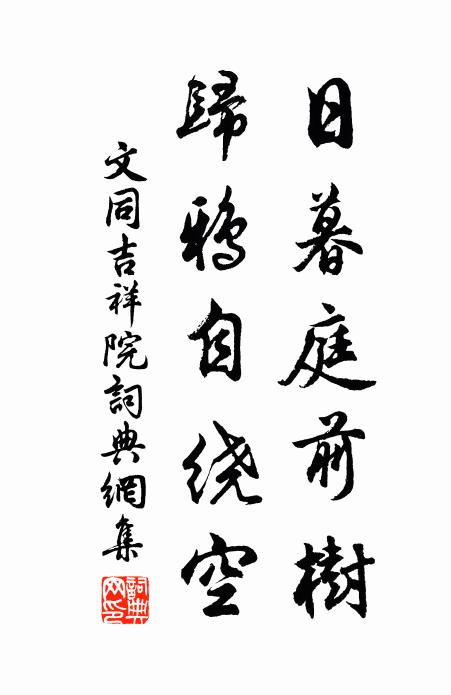 日暮庭前樹
歸鴉自绕空
文同吉祥院詞典網集
詞典网印